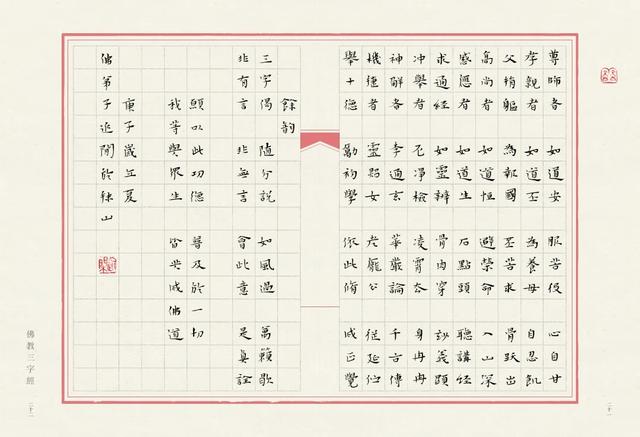 尊師者 如道安 服苦役 心自甘
孝親者 如道丕 為養母 自忍飢
父捐軀 為報國 丕苦求 骨躍出
高尚者 如道恒 避榮命 入山深
感應者 如道生 石點頭 聽講經
求通經 如靈辨 骨肉穿 妙義顯
沖舉者 尼淨檢 凌霄去 身冉冉
神解者 李通玄 華嚴論 千古傳
機捷者 靈照女 老龐公 從延佇
舉十德 勖初學 依此脩 成正覺
餘韵
三字偈 隨分說 如風過 萬籟歇
非有言 非無言 會此意 是真詮
願以此功德 普及於一切
我等與眾生 皆共成佛道
庚子歲立夏
佛弟子 開於 山
佛教三字經